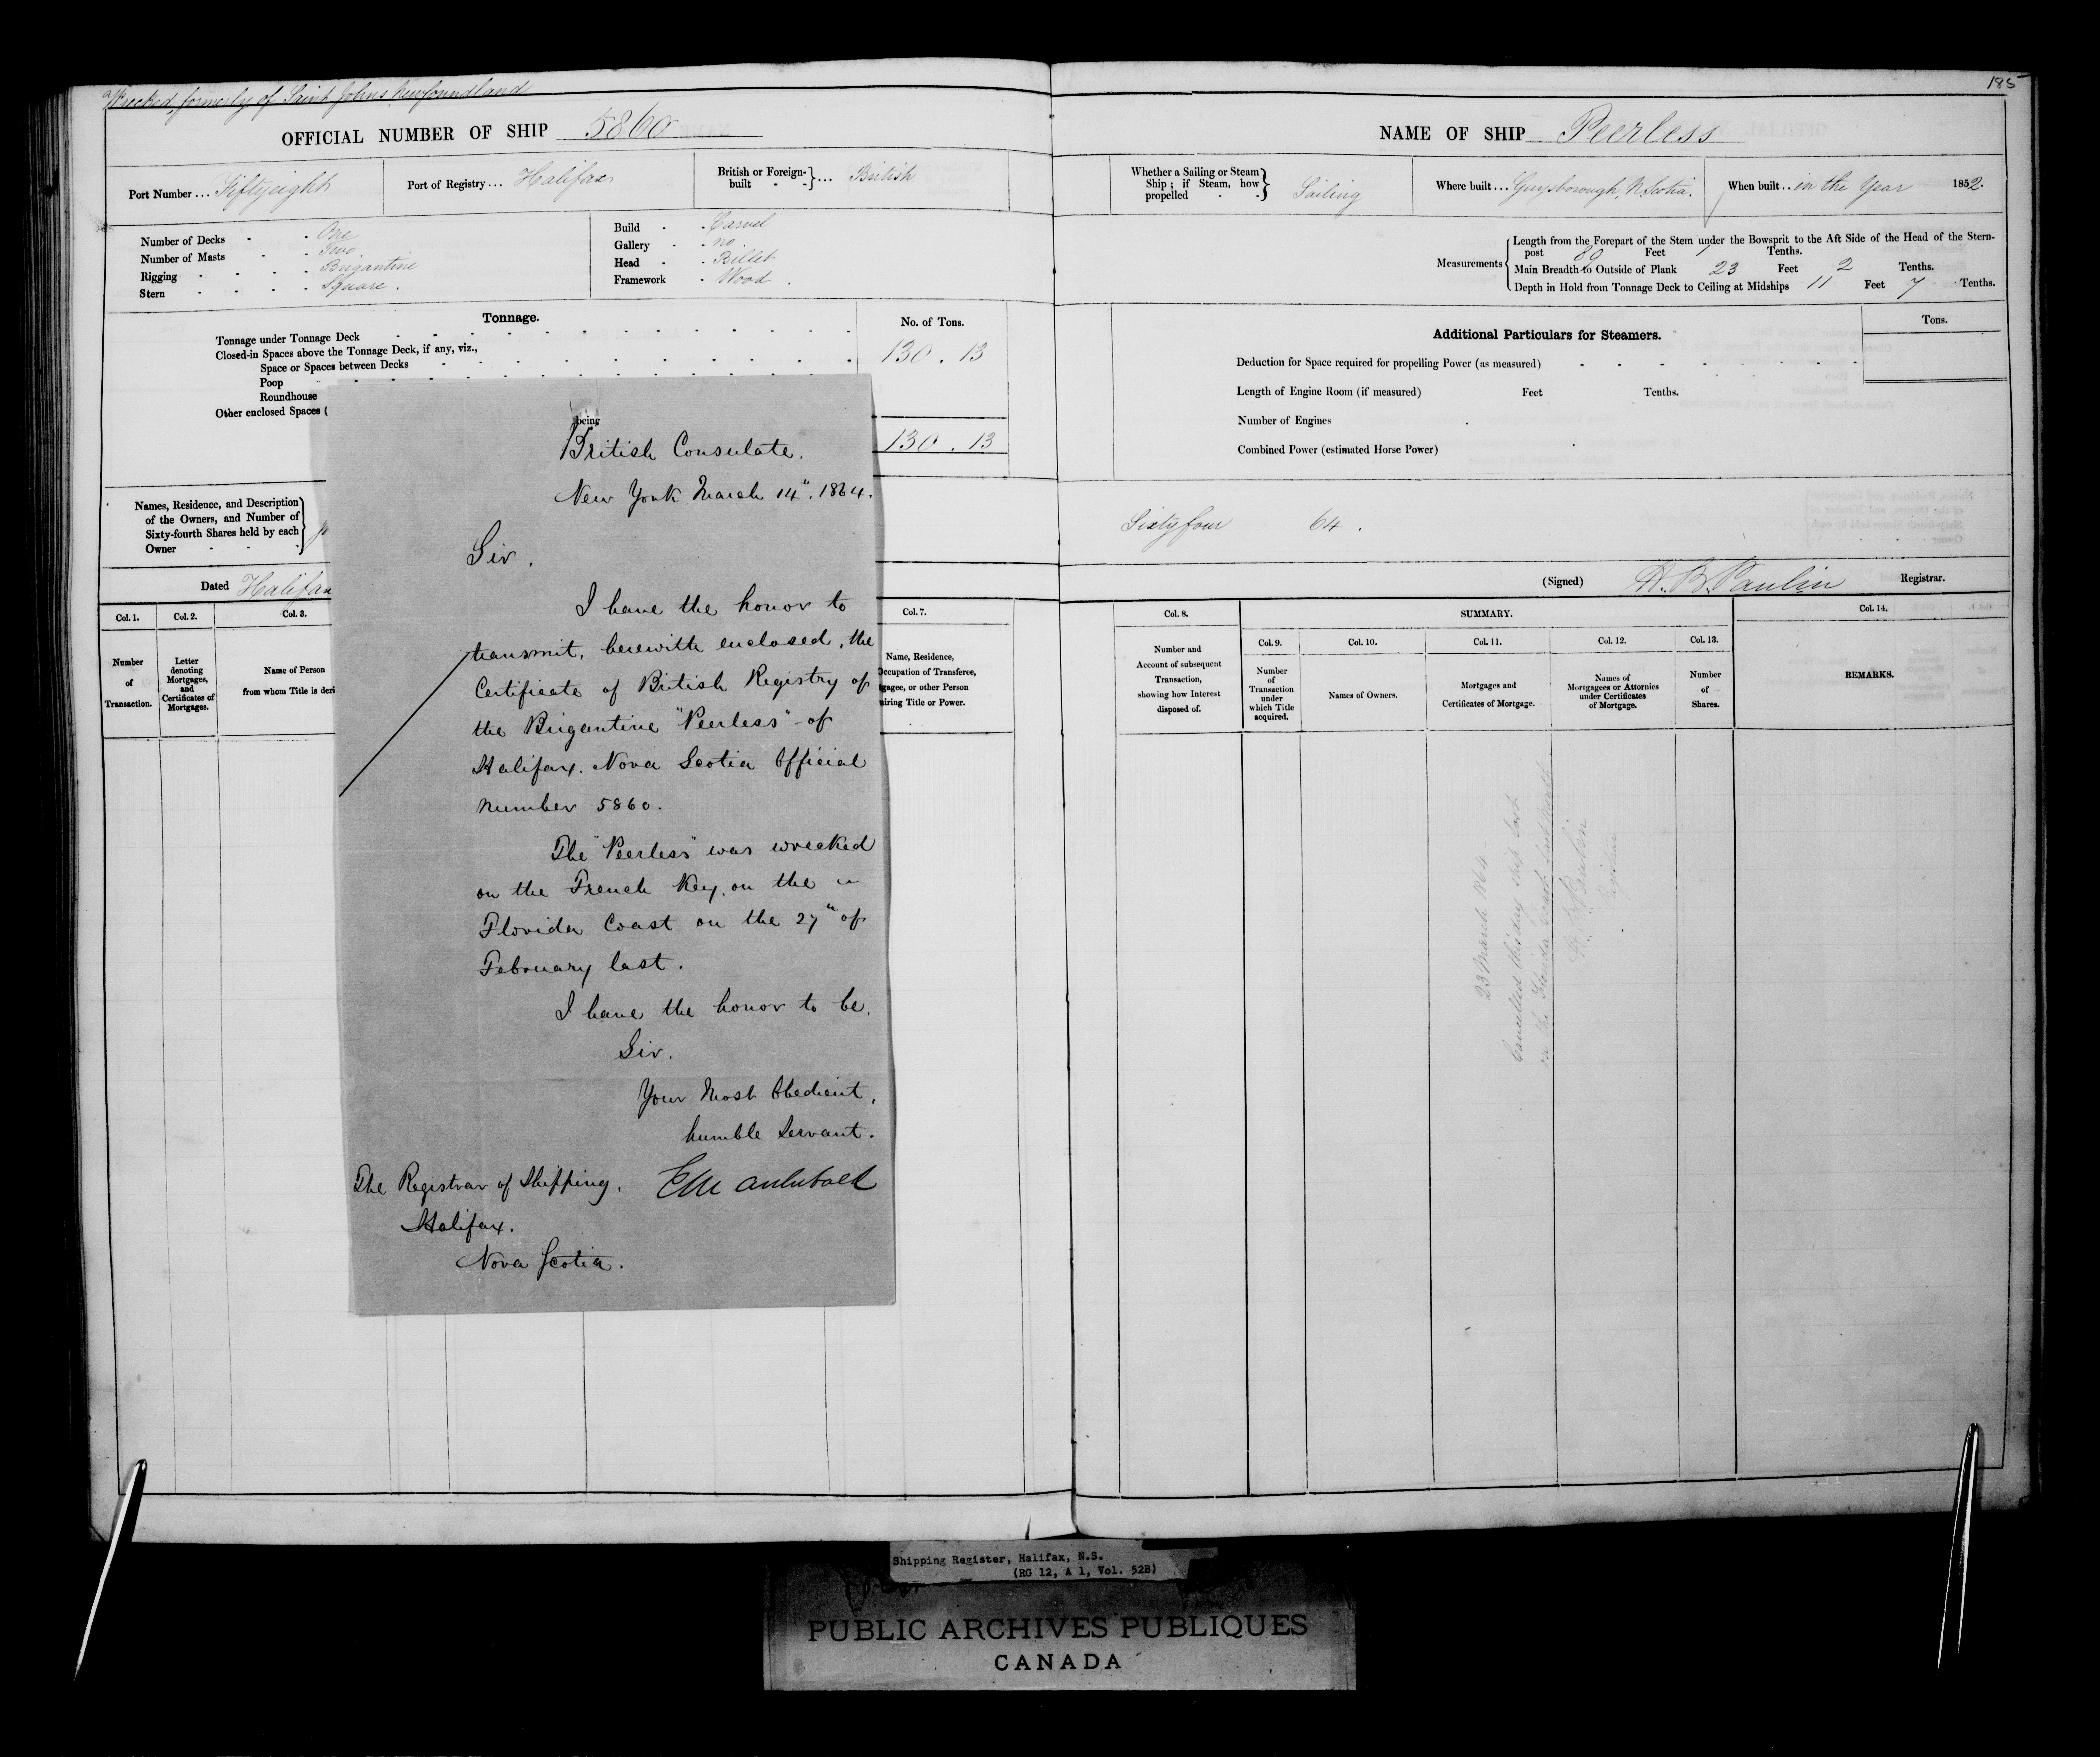 Wrecked, formerly of Saint Johns Newfoundland
185
OFFICIAL NUMBER OF SHIP 5860
NAME OF SHIP Peerless
Port Number ... Fiftyeight
Port of Registry ... Halifax
British or Foreign-built - - } ... British
Whether a Sailing or Steam Ship; if Steam, how propelled - - } Sailing
Where built ... Guysborough, N. Scotia.
When built .. in the Year 1852.
Number of Decks - - One
Number of Masts - - Two
Rigging - - - - Brigantine
Stern - - - - Square.
Build - - Carvel
Gallery - - no
Head - - Billet
Framework - Wood.
Measurements
Length from the Forepart of the Stem under the Bowsprit to the Aft Side of the Head of the Stern-
post 89 Feet 7 Tenths.
Main Breadth to Outside of Plank 23 Feet 2 Tenths.
Depth in Hold from Tonnage Deck to Ceiling at Midships 11 Feet 7 Tenths.
Tonnage.
No. of Tons.
Tonnage under Tonnage Deck
Closed-in Spaces above the Tonnage Deck, if any, viz.,
130 . 13
Space or Spaces between Decks
Poop
Roundhouse
Other enclosed Spaces (
130 . 13
Additional Particulars for Steamers.
Tons.
Deduction for Space required for propelling Power (as measured)
Length of Engine Room (if measured) Feet Tenths.
Number of Engines
Combined Power (estimated Horse Power)
Names, Residence, and Description
of the Owners, and Number of
Sixty-fourth Shares held by each
Owner
Sixty four 64.
Dated Halifax
(Signed) H. B. Paulin Registrar.
being
British Consulate.
New York March 14". 1864.
Sir.
I have the honor to
transmit, herewith enclosed, the
Certificate of British Registry of
the Brigantine "Peerless" of
Halifax. Nova Scotia Official
number 5860.
The "Peerless" was wrecked
on the French Key, on the
Florida Coast on the 27" of
February last.
I have the honor to be.
Sir.
Your Most Obedient,
humble Servant.
The Registrar of Shipping,
Halifax.
Nova Scotia.
Col. 1.
Number
of
Transaction.
Col. 2.
Letter
denoting
Mortgages,
and
Certificates of
Mortgages.
Col. 3.
Name of Person
from whom Title is deri
Col. 7.
Name, Residence,
Occupation of Transferee,
gagee, or other Person
iring Title or Power.
Col. 8.
Number and
Account of subsequent
Transaction,
showing how Interest
disposed of.
SUMMARY.
Col. 9.
Number
of
Transaction
under
which Title
acquired.
Col. 10.
Names of Owners.
Col. 11.
Mortgages and
Certificates of Mortgage.
Col. 12.
Names of
Mortgagees or Attornies
under Certificates
of Mortgage.
Col. 13.
Number
of
Shares.
Col. 14.
REMARKS.
23 March 1864
Cancelled this day ship lost
on the Florida Coast
H. B. Paulin
Registrar
Shipping Register, Halifax, N.S.
(RG 12, A 1, Vol. 52B)
PUBLIC ARCHIVES PUBLIQUES
CANADA